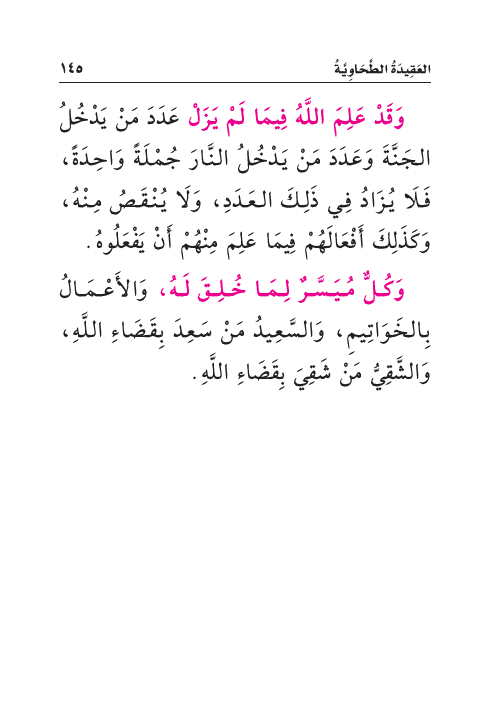 العَقِيدَةُ الطَّحَاوِيَّةُ ١٤٥
وَقَدْ عَلِمَ اللَّهُ فِيمَا لَمْ يَزَلْ عَدَدَ مَنْ يَدْخُلُ
الجَنَّةَ وَعَدَدَ مَنْ يَدْخُلُ النَّارَ جُمْلَةً وَاحِدَةً،
فَلَا يُزَادُ فِي ذَلِكَ العَدَدِ، وَلَا يُنْقَصُ مِنْهُ،
وَكَذَلِكَ أَفْعَالَهُمْ فِيمَا عَلِمَ مِنْهُمْ أَنْ يَفْعَلُوهُ.
وَكُلٌّ مُيَسَّرٌ لِمَا خُلِقَ لَهُ، وَالأَعْمَالُ
بِالخَوَاتِيمِ، وَالسَّعِيدُ مَنْ سَعِدَ بِقَضَاءِ اللَّهِ،
وَالشَّقِيُّ مَنْ شَقِيَ بِقَضَاءِ اللَّهِ.